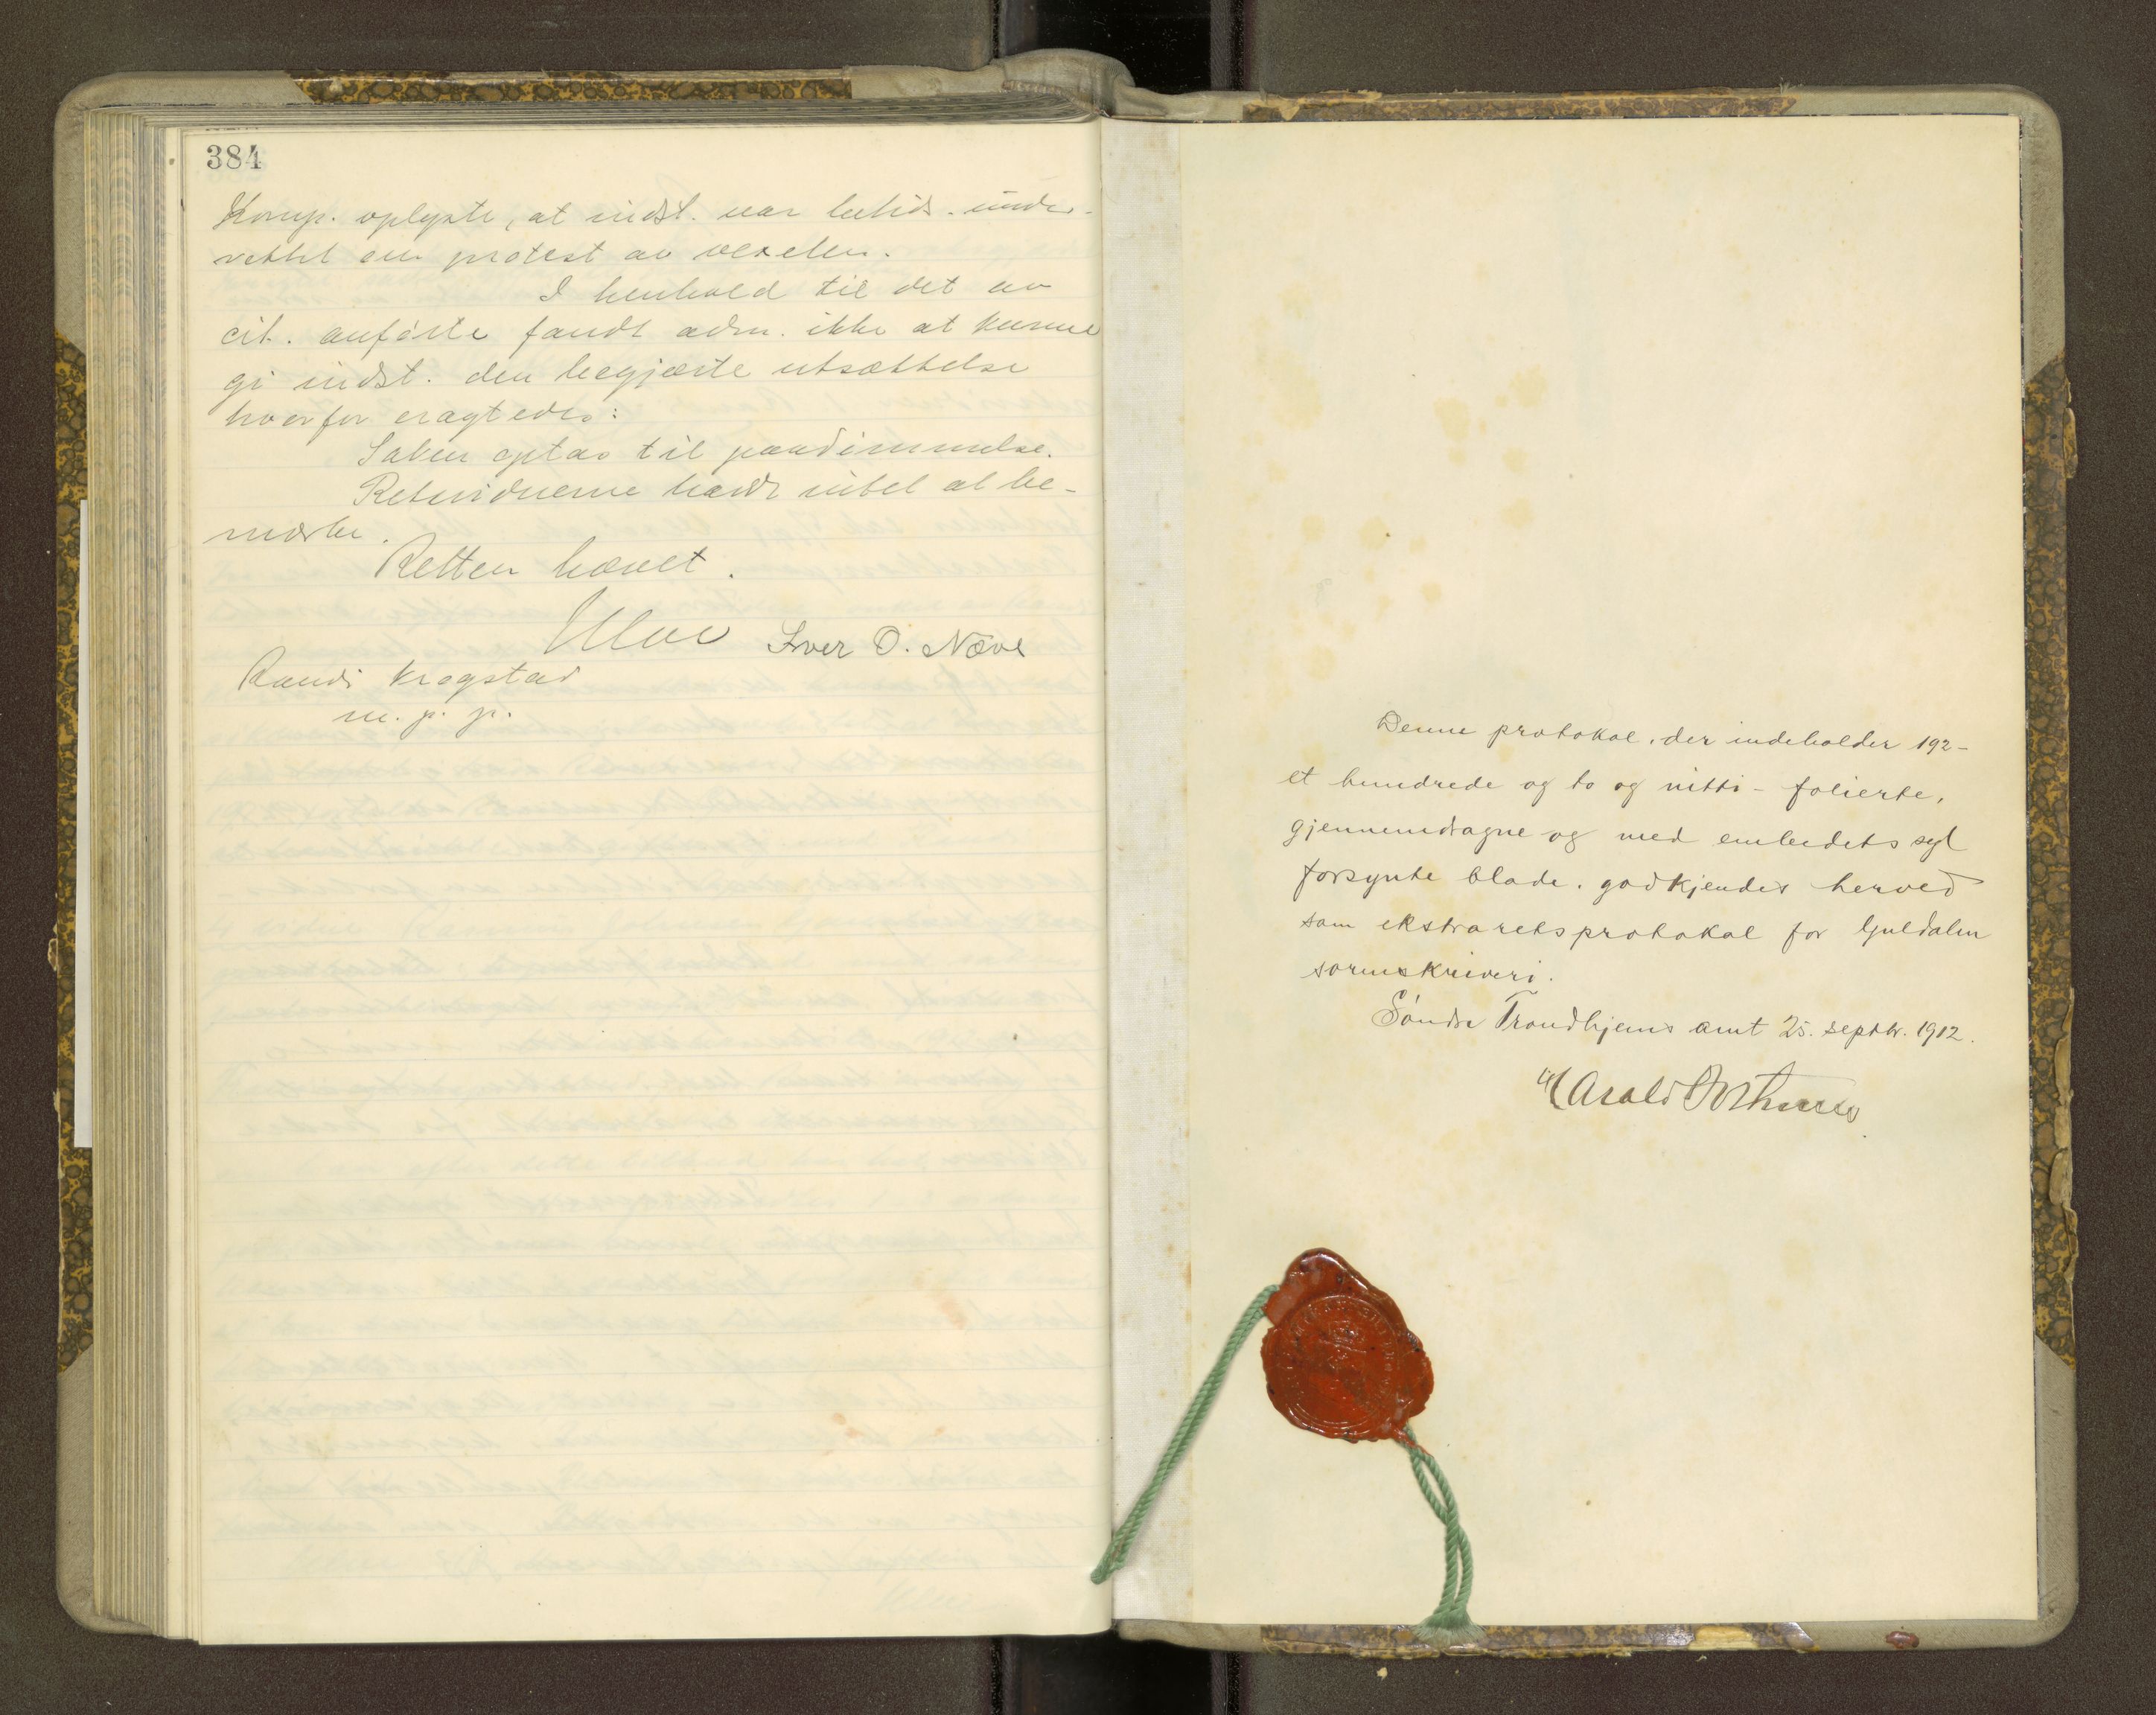 384
Komp. oplyste, at indst. var betids. under-
rettet om protest av vexelen.
I henhold til det av
cit. anförte fandt adm. ikke at kunne
gi indst. den begjærte utsættelse
hvorfor eragtedes:
Saken optas til paadømmelse.
Retsvidnerne hadde intet at be-
mærke.
Retten hævet.
Iver O. Næve
Randi Krogstad
m. p. p.
Denne protokol, der indeholder 192 -
et hundrede og to og nitti - folierte,
gjennemdragne og med embedets segl
forsynte blade, godkjendes herved
som ekstraretsprotokol for Guldalen
sorenskriveri.
Söndre Trondhjems amt 25. septbr. 1912.
Harald Bothner